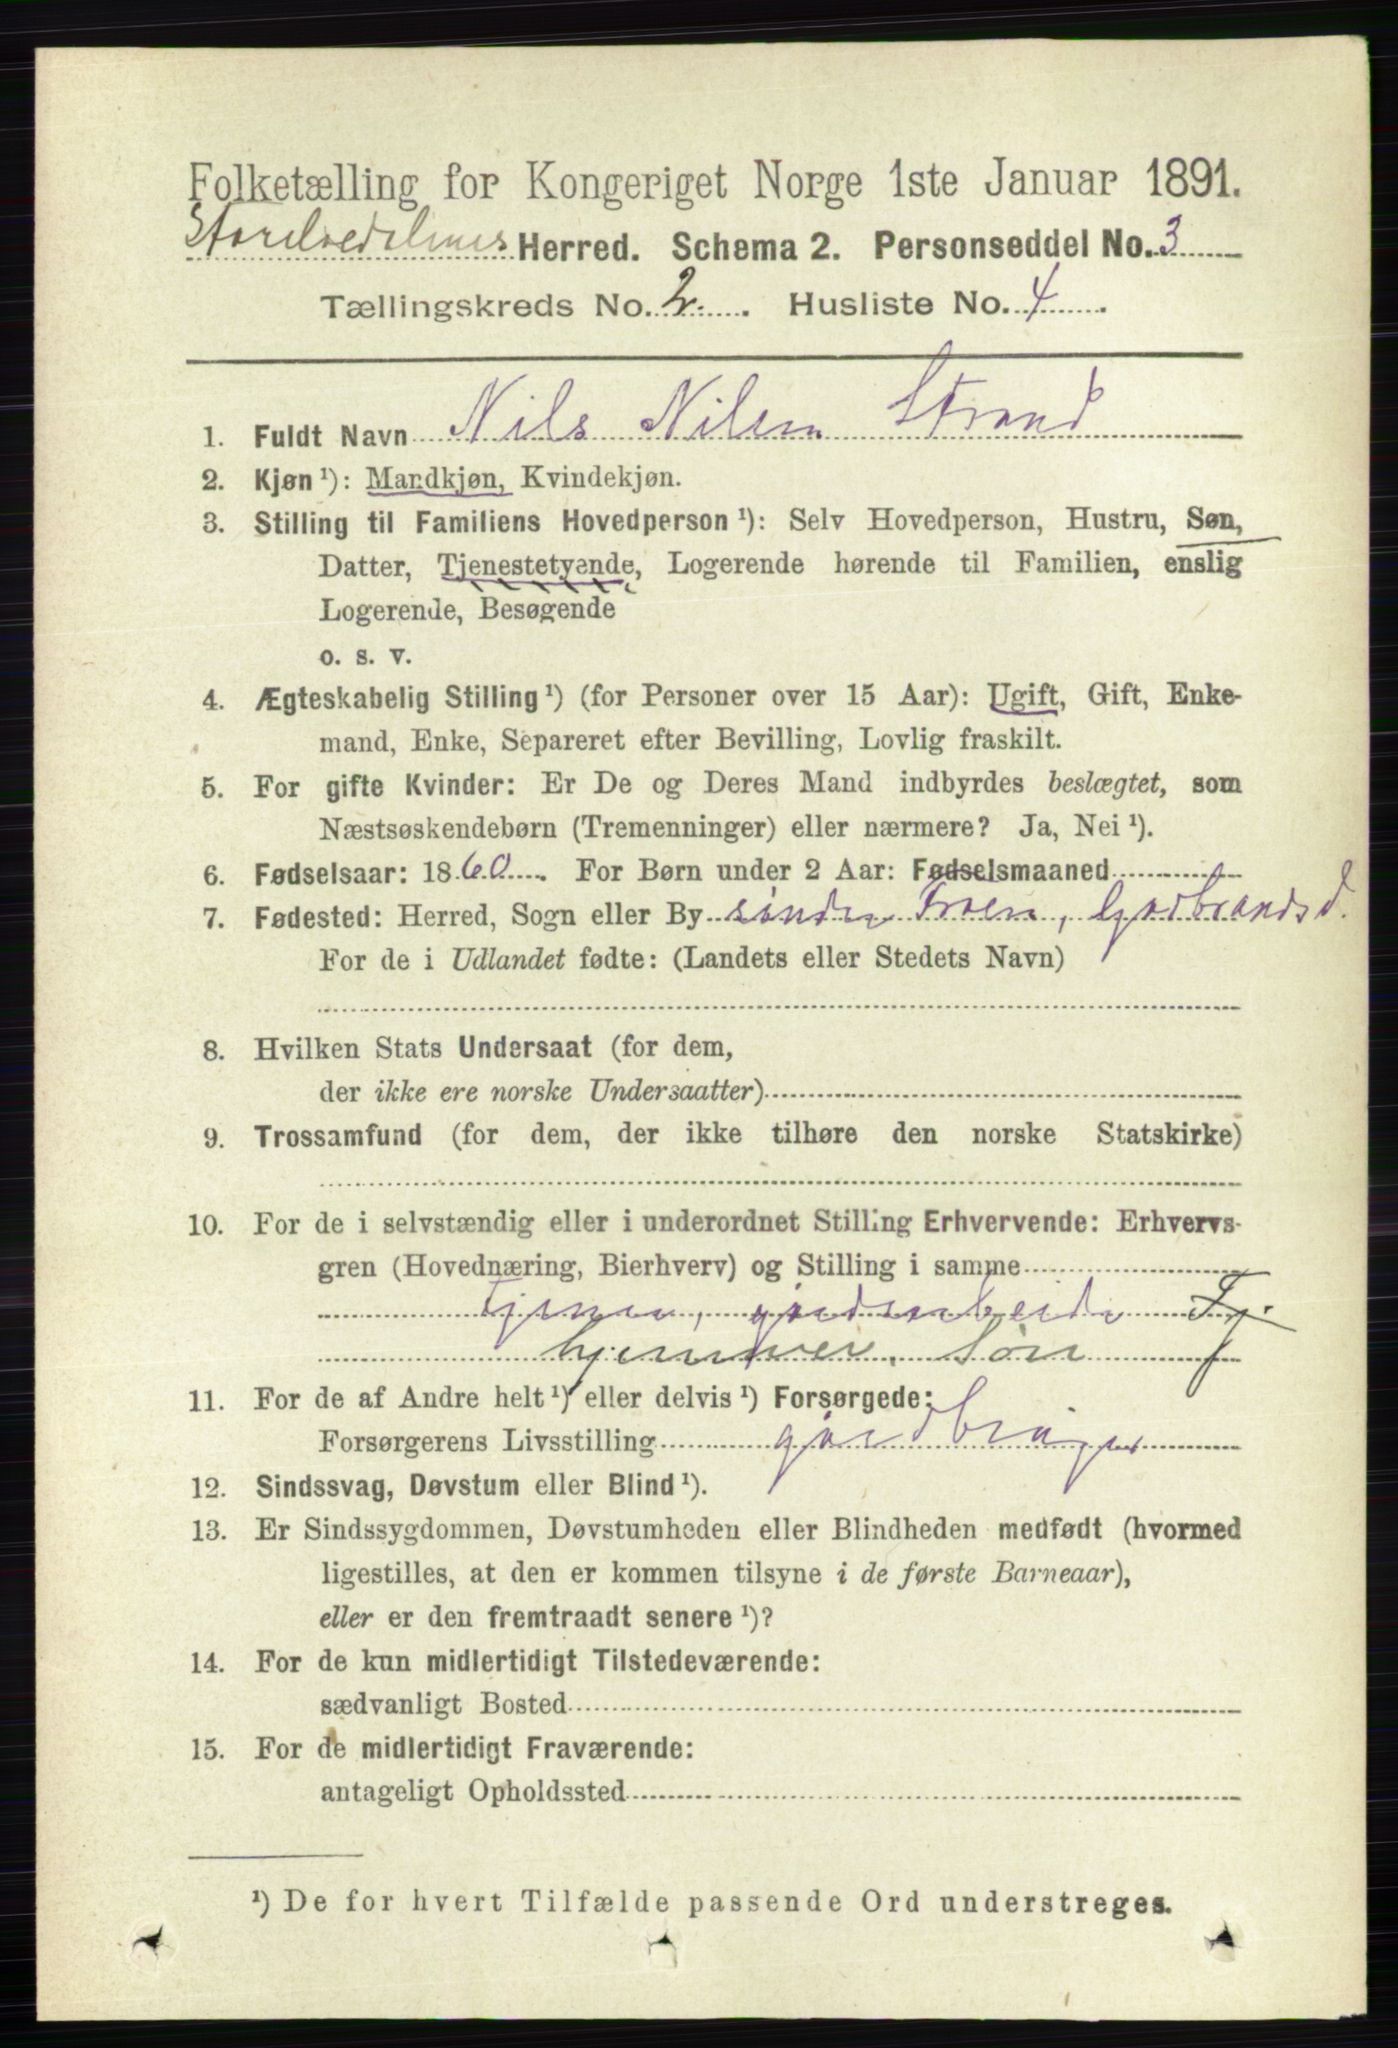 Folketælling for Kongeriget Norge 1ste Januar 1891.
Storelvedalens Herred. Schema 2. Personseddel No. 3
Tællingskreds No. 2. Husliste No. 4.
1. Fuldt Navn Nils Nilsen Strand
2. Kjøn¹): Mandkjøn, Kvindekjøn.
3. Stilling til Familiens Hovedperson¹): Selv Hovedperson, Hustru, Søn,
Datter, Tjenestetyende, Logerende hørende til Familien, enslig
Logerende, Besøgende
o. s. v.
4. Ægteskabelig Stilling¹) (for Personer over 15 Aar): Ugift, Gift, Enke-
mand, Enke, Separeret efter Bevilling, Lovlig fraskilt.
5. For gifte Kvinder: Er De og Deres Mand indbyrdes beslægtet, som
Næstsøskendebørn (Tremenninger) eller nærmere? Ja, Nei¹).
6. Fødselsaar: 1860. For Børn under 2 Aar: Fødselsmaaned
7. Fødested: Herred, Sogn eller By søndre Froen, Gudbrandsd.
For de i Udlandet fødte: (Landets eller Stedets Navn)
8. Hvilken Stats Undersaat (for dem,
der ikke ere norske Undersaatter)
9. Trossamfund (for dem, der ikke tilhøre den norske Statskirke)
10. For de i selvstændig eller i underordnet Stilling Erhvervende: Erhvervs-
gren (Hovednæring, Bierhverv) og Stilling i samme
tjener, gårdsarbeide Tj.
hjemmev. Søn
11. For de af Andre helt¹) eller delvis¹) Forsørgede:
Forsørgerens Livsstilling gårdbruger
12. Sindssvag, Døvstum eller Blind¹).
13. Er Sindssygdommen, Døvstumheden eller Blindheden medfødt (hvormed
ligestilles, at den er kommen tilsyne i de første Barneaar),
eller er den fremtraadt senere¹)?
14. For de kun midlertidigt Tilstedeværende:
sædvanligt Bosted
15. For de midlertidigt Fraværende:
antageligt Opholdssted
¹) De for hvert Tilfælde passende Ord understreges.